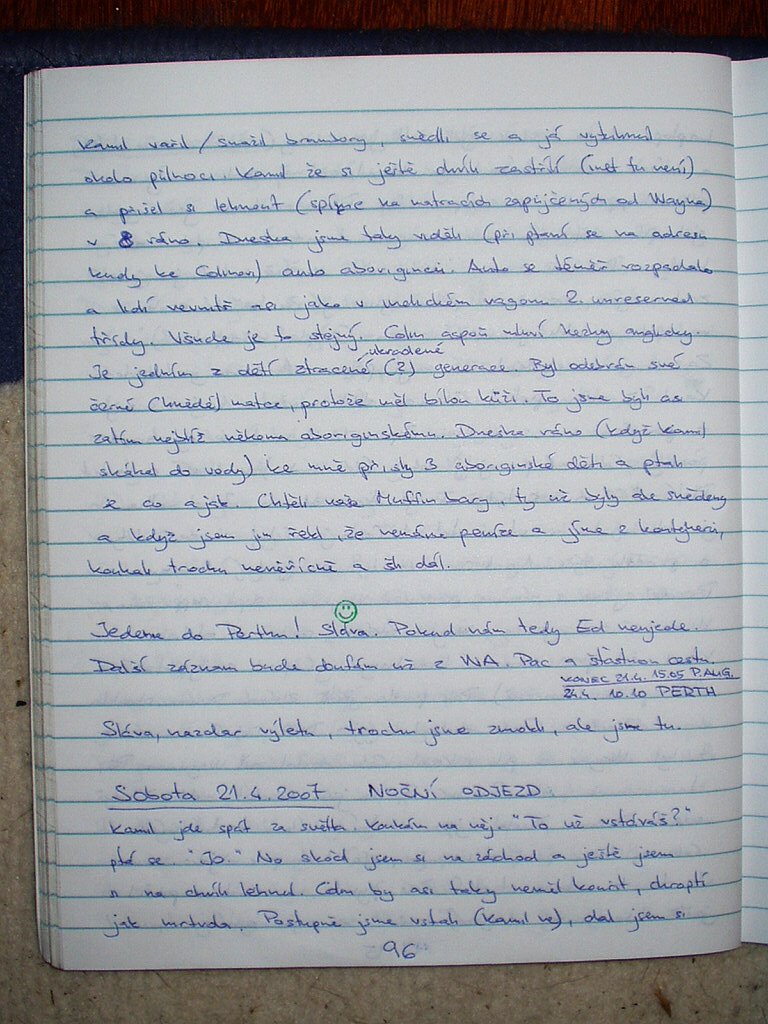 Kamil vařil / smažil brambory, snědli se a já vytuhnul
okolo půlnoci. Kamil že si ještě chvíli zastřílí (inet tu není)
a přišel si lehnout (spíme na matracích zapůjčených od Wayna)
v 8 ráno. Dneska jsme taky viděli (při ptaní se na adresu
kudy ke Colinovi) auto aboriginců. Auto se téměř rozpadalo
a lidí vevnitř asi jako v indickém vagonu 2. unreserved
třídy. Všude je to stejný. Colin aspoň mluví hezky anglicky.
ukradené
Je jedním z dětí ztracené (?) generace. Byl odebrán své
černé (hnědé) matce, protože měl bílou kůži. To jsme byli asi
zatím nejblíž někomu aboriginskýmu. Dneska ráno (když Kamil
skákal do vody) ke mně přišly 3 aboriginské děti a ptali
se co a jak. Chtěli naše Muffin bary, ty už byly ale snědeny
a když jsem jim řekl, že nemáme peníze a jíme z kontejnerů,
koukali trochu nevěřícně a šli dál.
Jedeme do Perthu! Sláva. Pokud nám tedy Ed neujede.
Další záznam bude doufám už z WA. Pac a šťastnou cestu.
KONEC 21.4. 15.05 P.AUG.
24.4. 10.10 PERTH
Sláva, nazdar výletu, trochu jsme zmokli, ale jsme tu.
Sobota 21.4.2007 NOČNÍ ODJEZD
Kamil jde spát za světla. Koukám na něj. "To už vstáváš?"
ptá se. "Jo." No skočil jsem si na záchod a ještě jsem
si na chvíli lehnul. Colin by asi taky neměl kouřit, chroptí
jak mrtvola. Postupně jsme vstali (Kamil ne), dal jsem si
96